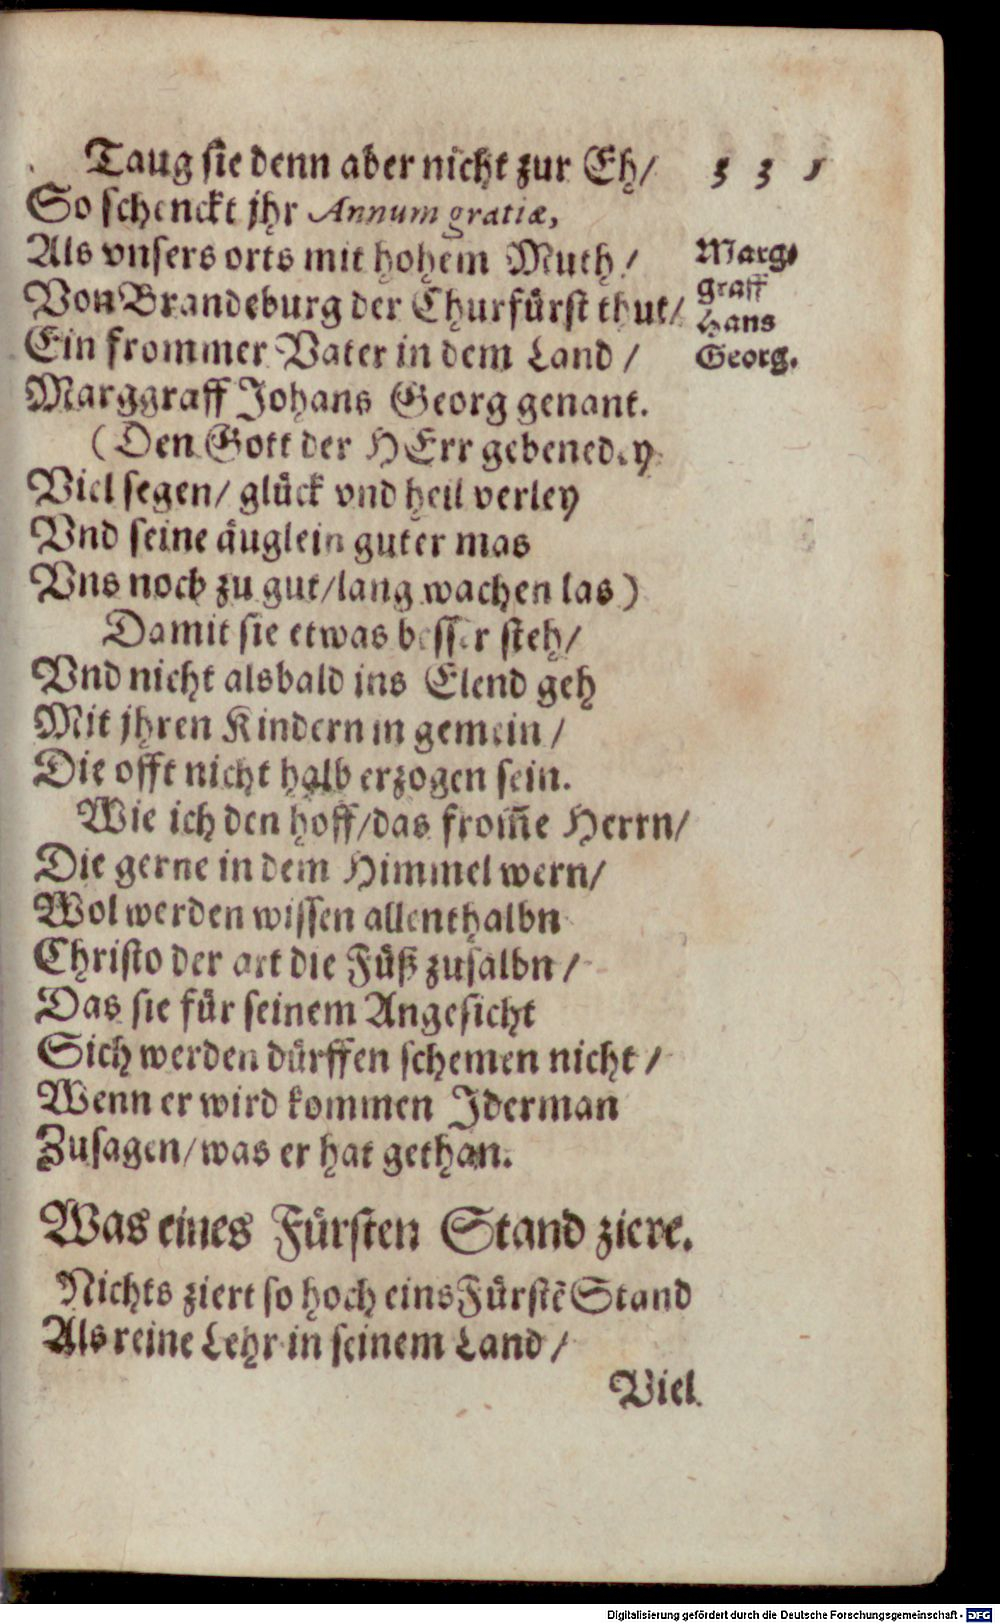 Taug sie denn aber nicht zur Eh/
331
So schenckt jhr Annum gratiæ,
Als vnsers orts mit hohem Muth/
Von Brandeburg der Churfürst thut/
Ein frommer Vater in dem Land/
Marggraff Johans Georg genant.
Marg-
graff
Hans
Georg.
(Den Gott der HErr gebenedey
Viel segen/ glück vnd heil verley
Vnd seine äuglein guter mas
Vns noch zu gut/lang wachen las)
Damit sie etwas besser steh/
Vnd nicht alsbald ins Elend geh
Mit jhren Kindern in gemein/
Die offt nicht halb erzogen sein.
Wie ich den hoff/das from̃e Herrn/
Die gerne in dem Himmel wern/
Wol werden wissen allenthalbn
Christo der art die Füß zusalbn/
Das sie für seinem Angesicht
Sich werden dürffen schemen nicht/
Wenn er wird kommen Jderman
Zusagen/was er hat gethan.
Was eines Fürsten Stand ziere.
Nichts ziert so hoch eins Fürstẽ Stand
Als reine Lehr in seinem Land/
Viel
Digitalisierung gefördert durch die Deutsche Forschungsgemeinschaft - DFG